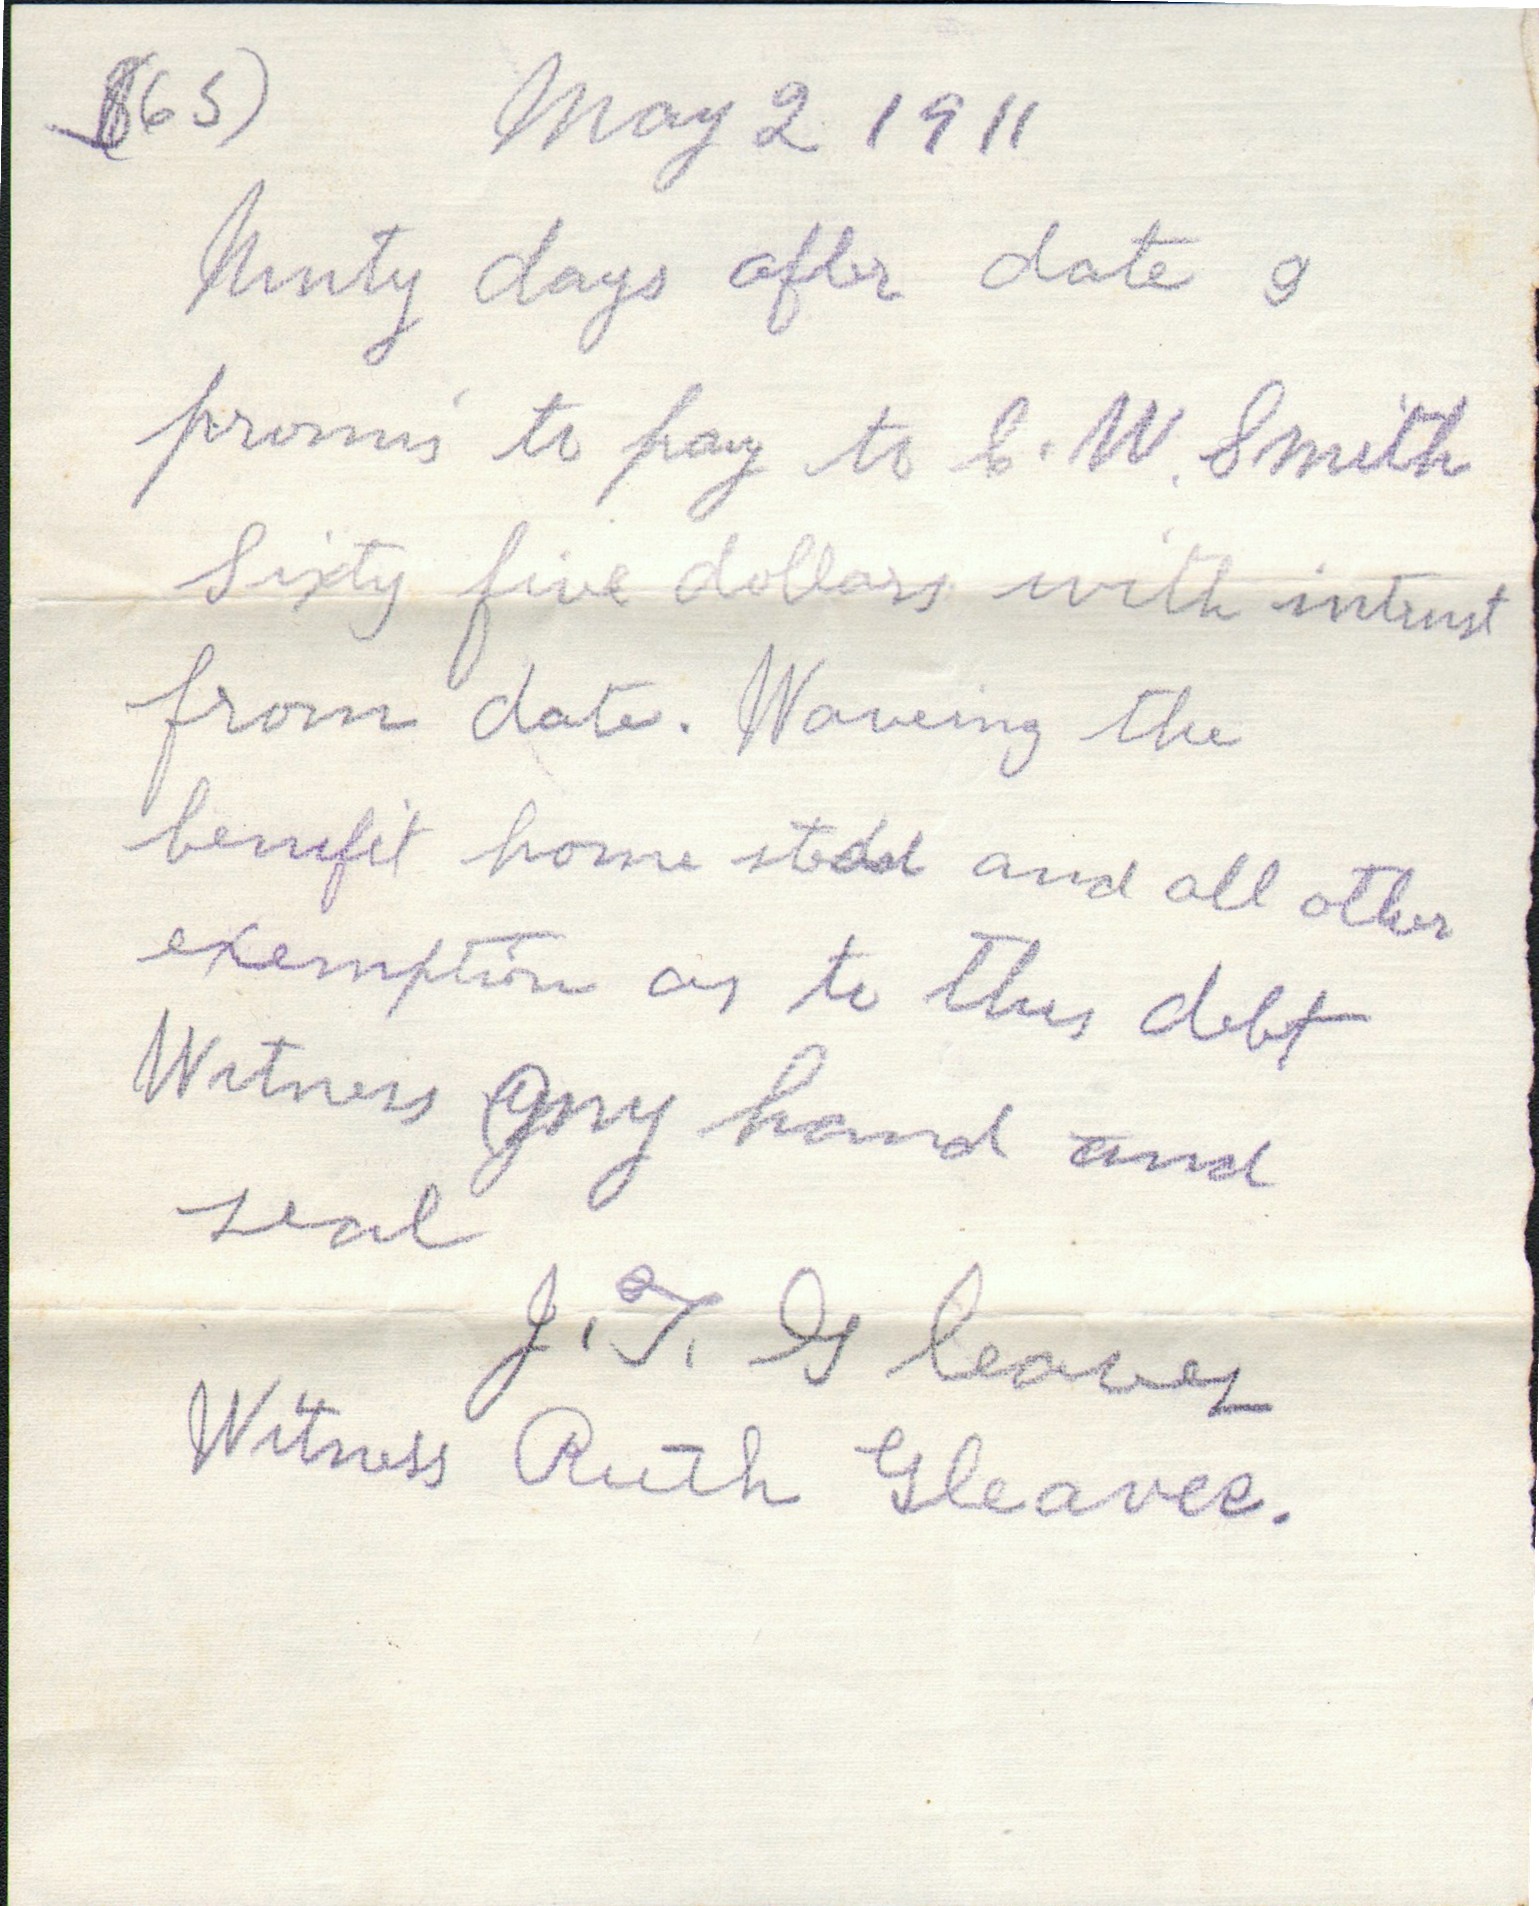 $(65) May 2 1911
Ninty days after date I
promis to pay to S. W. Smith
Sixty five dollars with intrust
from date. Waveing the
benifit home stedd and all other
exemption as to this debt
Witness my hand and
seal
J. T. Gleaves
Witness Ruth Gleavee.